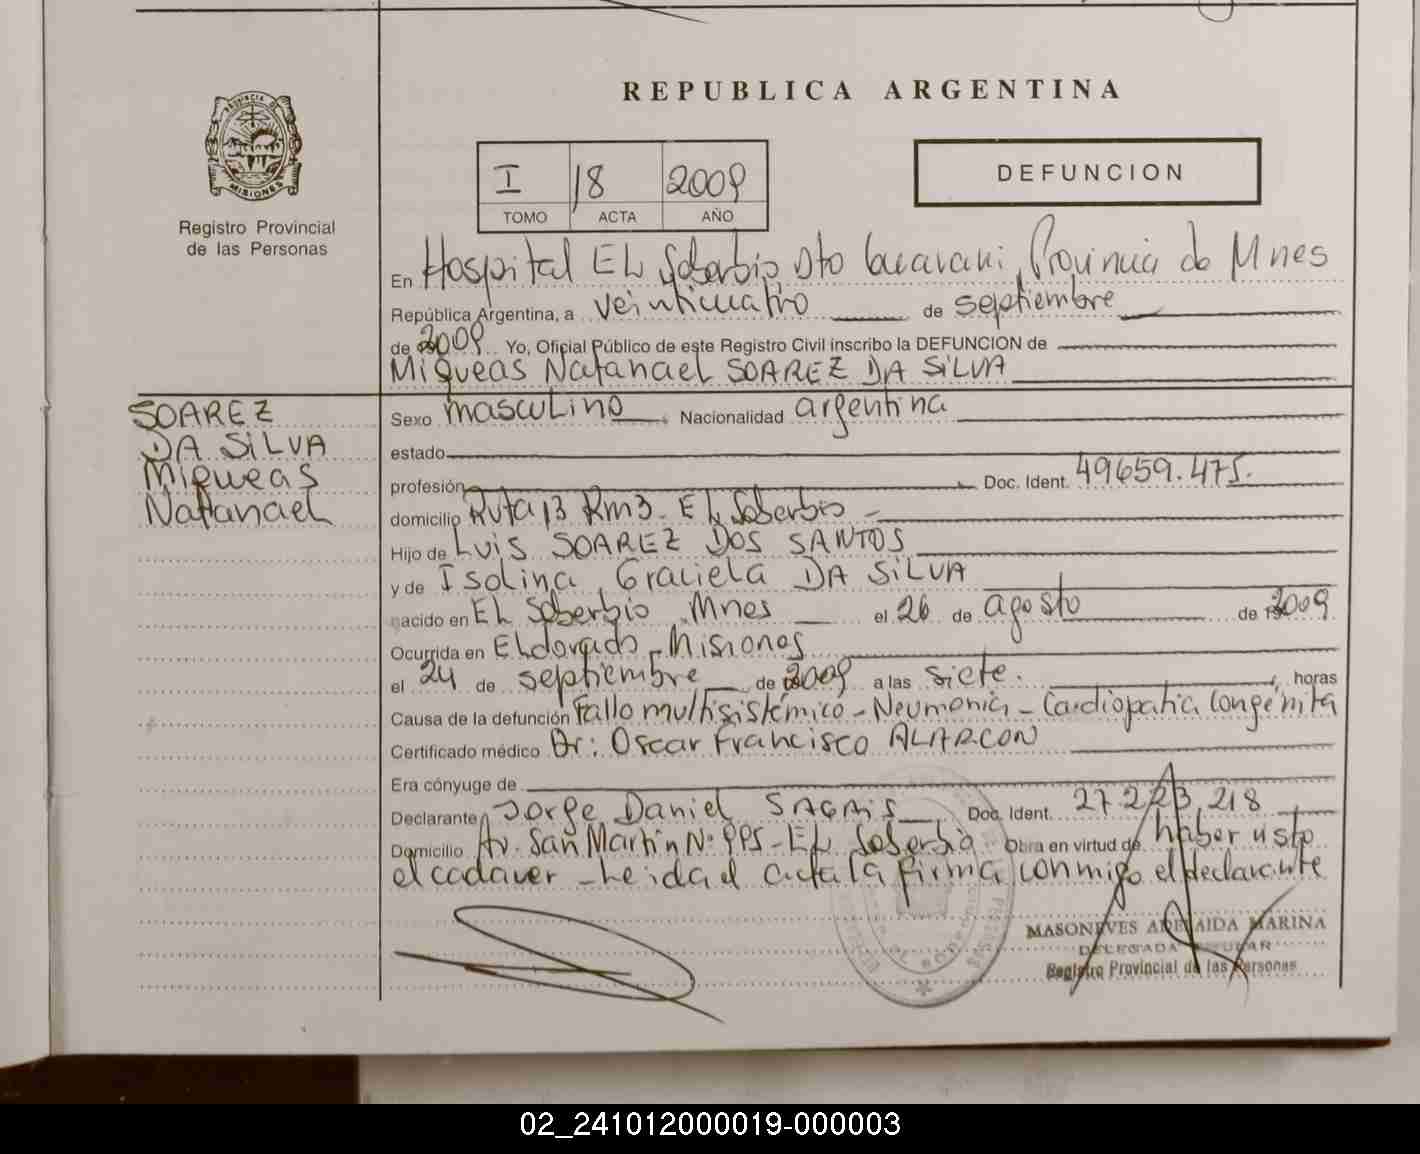 REPUBLICA ARGENTINA
PROVINCIA DE
MISIONES
Registro Provincial
de las Personas
I 18 2009
TOMO ACTA AÑO
DEFUNCION
En Hospital EL Soberbio Dto Guarani, Provincia de Mnes
República Argentina, a veinticuatro de septiembre
de 2009 Yo, Oficial Público de este Registro Civil inscribo la DEFUNCION de
Miqueas Natanael SOAREZ DA SILVA
SOAREZ
DA SILVA
Miqueas
Natanael
Sexo masculino, Nacionalidad argentina
estado
profesión Doc. Ident. 49659.475.
domicilio Ruta 13 Km3 - EL Soberbio -
Hijo de Luis SOAREZ DOS SANTOS
y de Isolina Graciela DA SILVA
nacido en EL Soberbio Mnes el 26 de agosto de 2009
Ocurrida en Eldorado - Misiones
el 24 de septiembre de 2009 a las siete. horas
Causa de la defunción Fallo multisistémico - Neumonia - Cardiopatia Congénita
Certificado médico Dr: Oscar Francisco ALARCON
Era cónyuge de
Declarante Jorge Daniel Doc. Ident. 27.223.218
Domicilio Av. San Martin Nº - EL Soberbio Obra en virtud de haber visto
el cadaver - Leida el acta la firma conmigo el declarante
MASONEVES ADELAIDA MARINA
DELEGADA TITULAR
Registro Provincial de las Personas
02_241012000019-000003